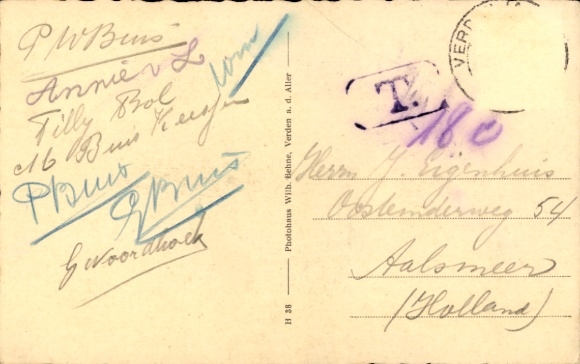 P W Buis
Annie v L
Tom
Tilly Bol
M Buis Keessen
P Buis
G Buis
G Noordhoek
H 38 — Photohaus Wilh. Behne, Verden a. d. Aller
VERD
T.
18 c
Herrn J. Eigenhuis
Oosteinderweg 54
Aalsmeer
(Holland)